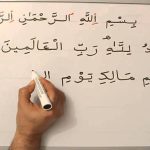 بِسْمِ اللهِ الرَّحْمٰنِ الرَّ
دُ لِلّٰهِ رَبِّ الْعَالَمِينَ
مِ مَالِكِ يَوْمِ ال